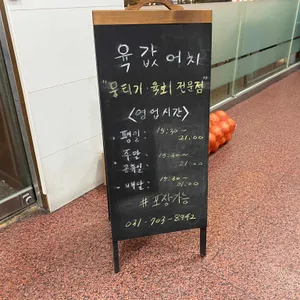 육값어치
"뭉티기·육회 전문점"
<영업시간>
· 평일 : 15:30~
21:00
· 주말
공휴일 : 15:30~
21:00
· 배달 : 15:30~
01:00
#포장가능
031-703-8392